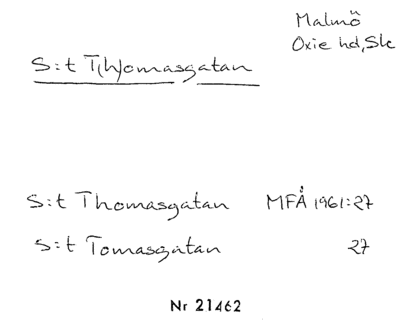 Malmö
Oxie hd, Sk
S:t T(h)omasgatan
S:t Thomasgatan MFÅ 1961:27
S:t Tomasgatan 27
Nr 21462